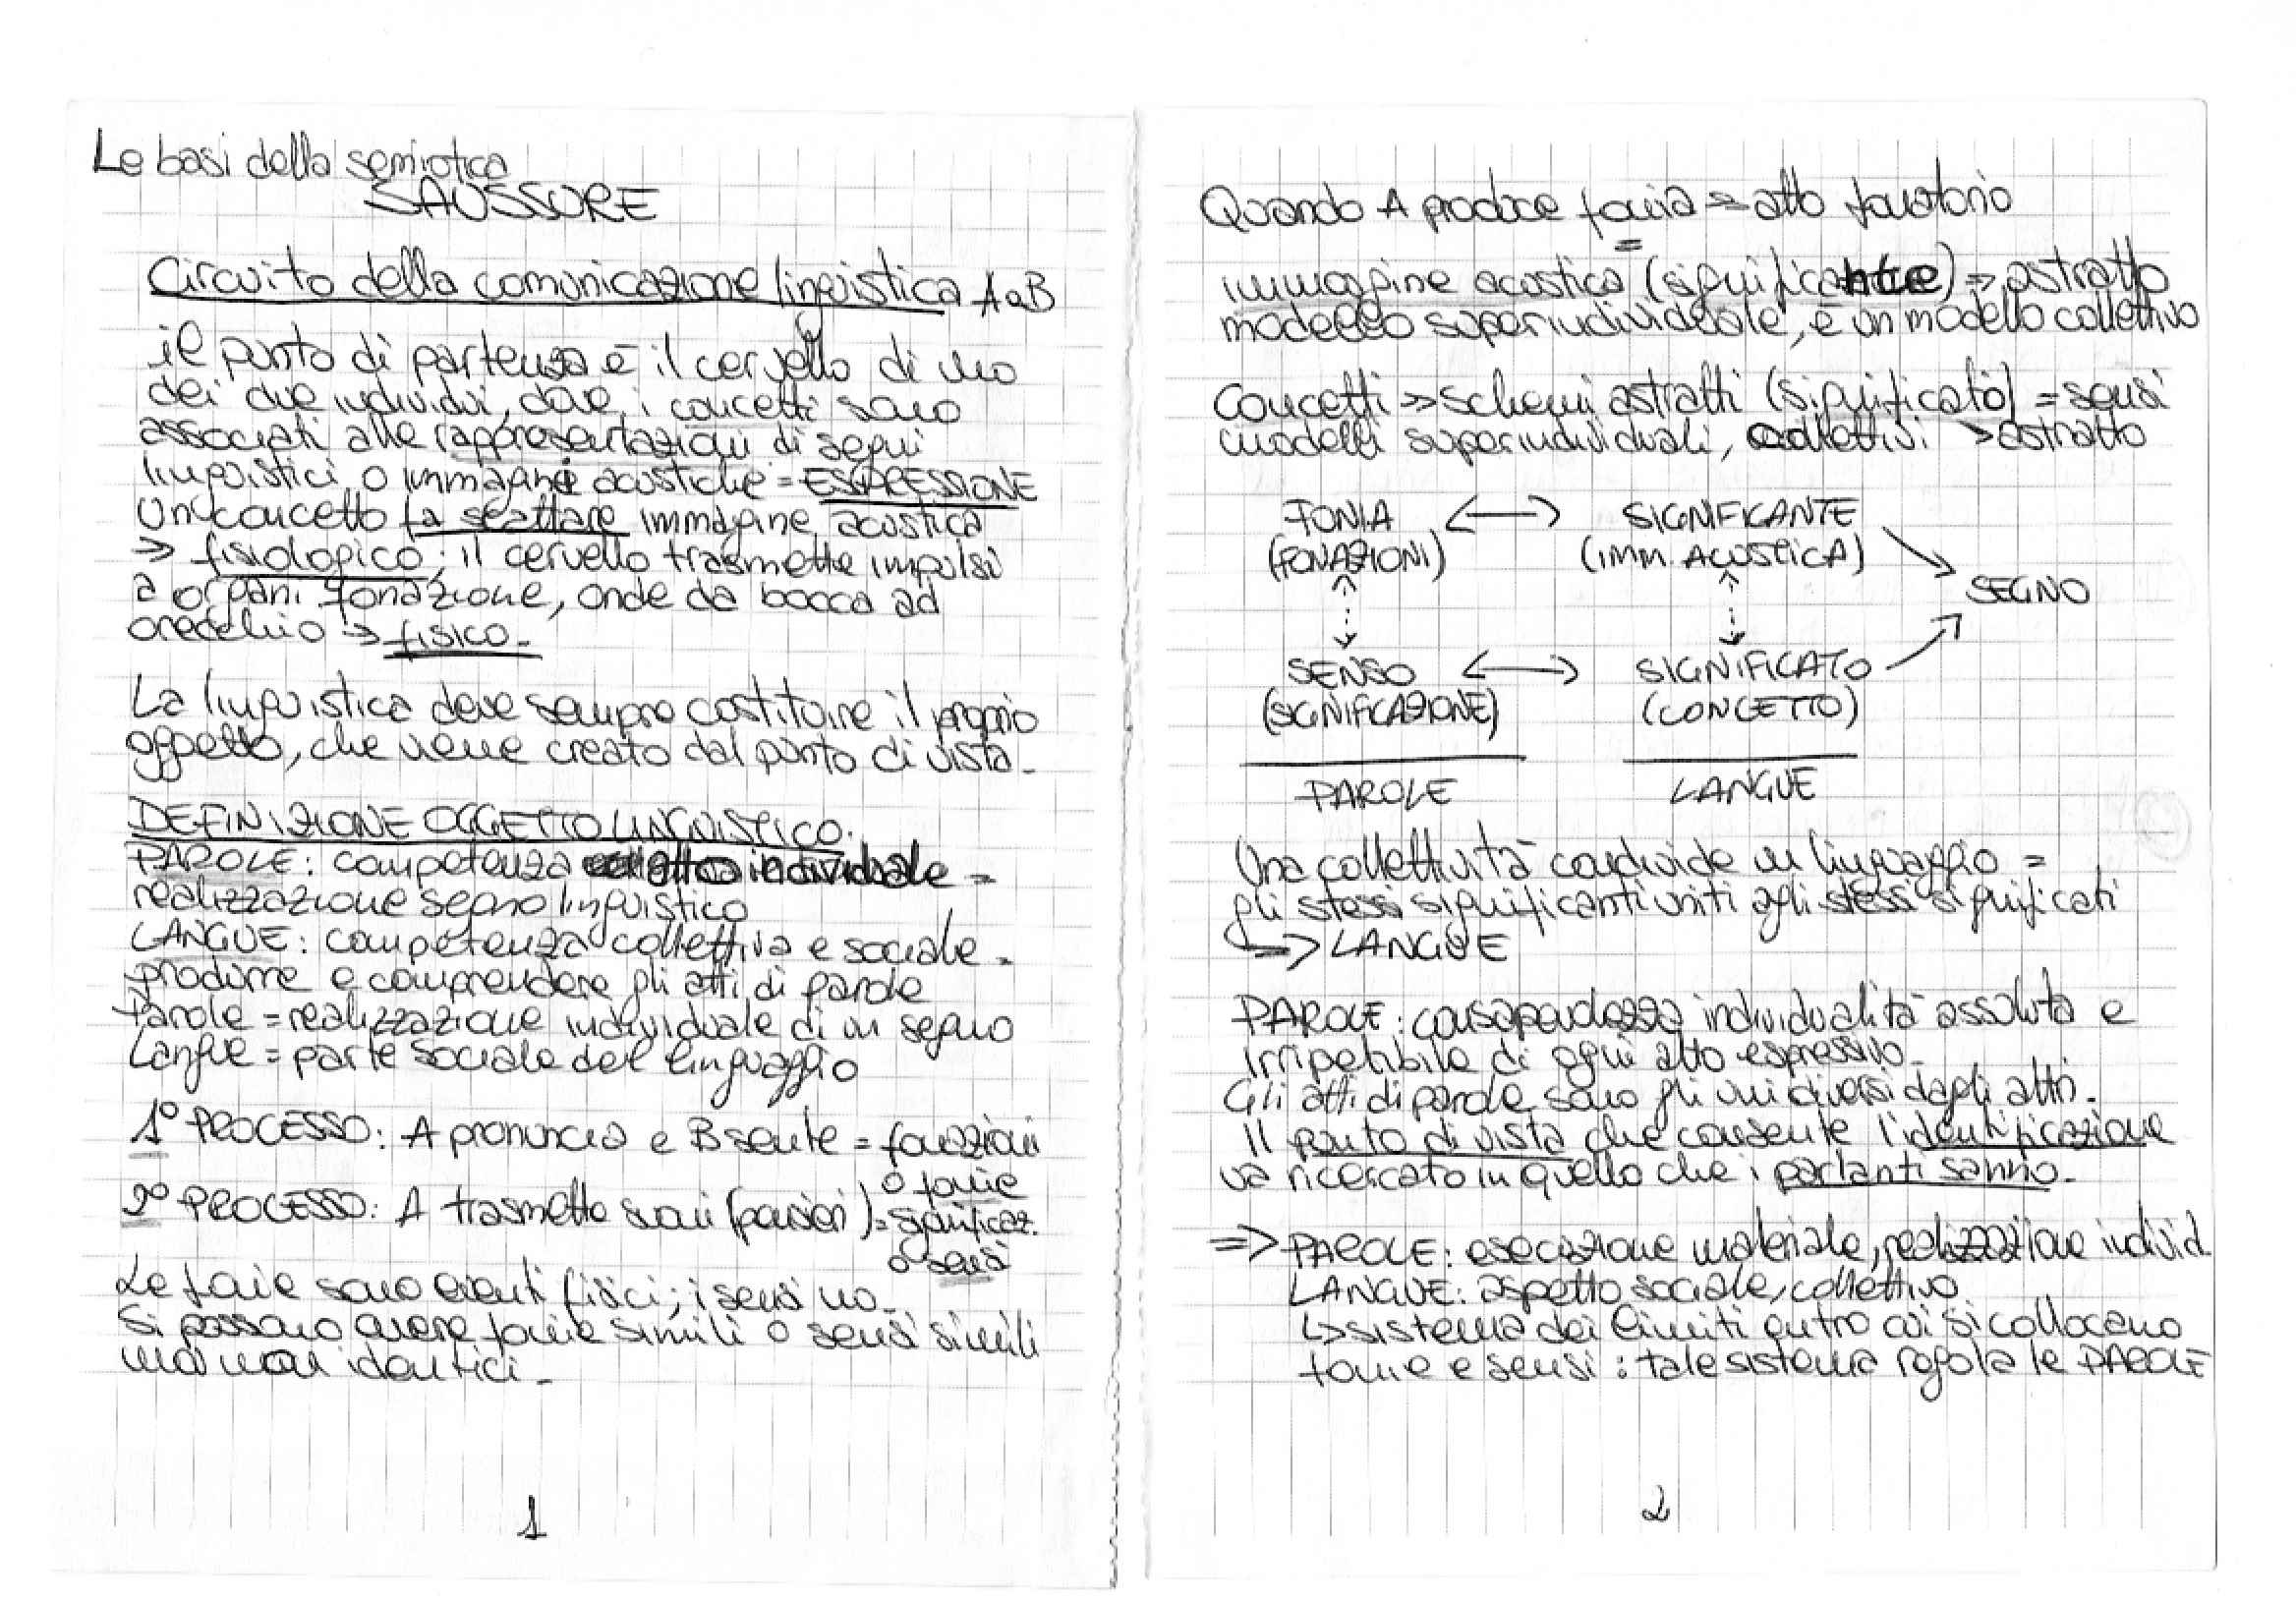 Le basi della semiotica
SAUSSURE
Circuito della comunicazione linguistica A e B
il punto di partenza è il cervello di uno
dei due individui, dove i concetti sono
associati alle rappresentazioni di segni
linguistici o immagini acustiche = ESPRESSIONE
Un concetto fa scattare immagine acustica
=> fisiologico; il cervello trasmette impulsi
a organi fonazione, onde da bocca ad
orecchio => fisico.
La linguistica deve sempre costituire il proprio
oggetto, che viene creato dal punto di vista.
DEFINIZIONE OGGETTO LINGUISTICO.
PAROLE: competenza individuale =
realizzazione segno linguistico
LANGUE: competenza collettiva e sociale =
produrre e comprendere gli atti di parole
Parole = realizzazione individuale di un segno
Langue = parte sociale del linguaggio
1° PROCESSO: A pronuncia e B sente = fonazioni
o fonie
2° PROCESSO: A trasmette suoni (pensieri) = significaz.
o sensi
Le fonie sono eventi fisici; i sensi no.
Si possono avere fonie simili o sensi simili
ma non identici.
1
Quando A produce fonia => atto fonatorio
=
immagine acustica (significante) => astratto
modello superindividuale, è un modello collettivo
Concetti => schemi astratti (significato) = sensi
modelli superindividuali, collettivi > astratto
FONIA <—> SIGNIFICANTE
(FONAZIONI) (IMM. ACUSTICA)
SEGNO
SENSO <—> SIGNIFICATO
(SIGNIFICAZIONE) (CONCETTO)
PAROLE LANGUE
Una collettività condivide un linguaggio =
gli stessi significanti uniti agli stessi significati
=> LANGUE
PAROLE: consapevolezza individualità assoluta e
irripetibile di ogni atto espressivo.
Gli atti di parole sono gli uni diversi dagli altri.
Il punto di vista che consente l'identificazione
va ricercato in quello che i parlanti sanno.
=> PAROLE: esecuzione materiale, realizzazione individ.
LANGUE: aspetto sociale, collettivo
↳ sistema dei limiti entro cui si collocano
fonie e sensi: tale sistema regola le PAROLE
2